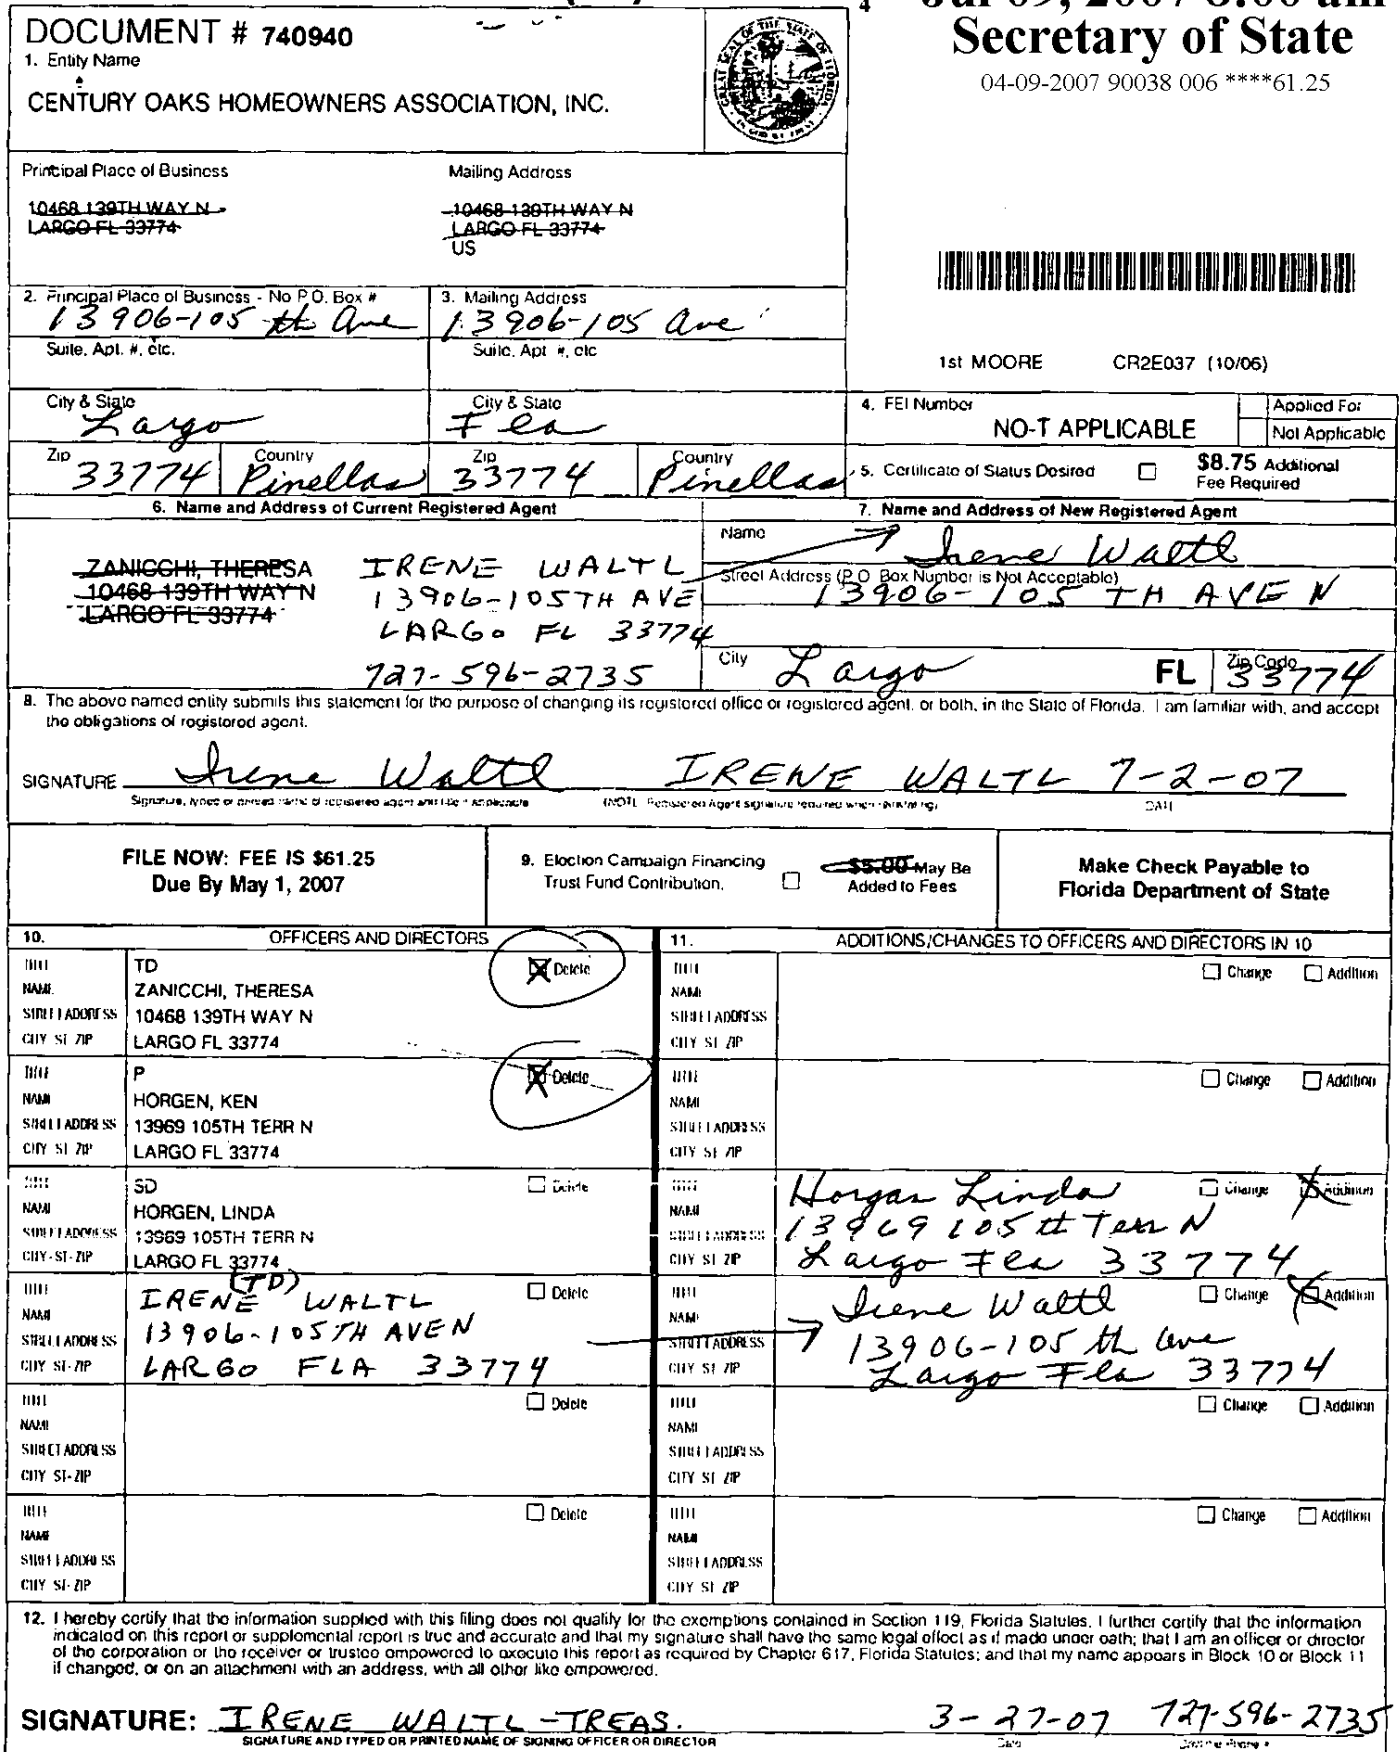 Secretary of State
04-09-2007 90038 006 ****61.25
DOCUMENT # 740940
1. Entity Name
CENTURY OAKS HOMEOWNERS ASSOCIATION, INC.
Principal Place of Business
10468 139TH WAY N
LARGO FL 33774
Mailing Address
10468 139TH WAY N
LARGO FL 33774
US
2. Principal Place of Business - No P.O. Box #
13906-105 th Ave
3. Mailing Address
13906-105 Ave
Suite, Apt. #, etc.
Suite, Apt #, etc
1st MOORE CR2E037 (10/06)
City & State
Largo
City & State
Fla
4. FEI Number
NO-T APPLICABLE
Applied For
Not Applicable
Zip
33774
Country
Pinellas
Zip
33774
Country
Pinellas
5. Certificate of Status Desired
$8.75 Additional
Fee Required
6. Name and Address of Current Registered Agent
ZANICCHI, THERESA
10468 139TH WAY N
LARGO FL 33774
IRENE WALTL
13906-105TH AVE
LARGO FL 33774
727-596-2735
7. Name and Address of New Registered Agent
Name
Irene Waltl
Street Address (P.O. Box Number is Not Acceptable)
13906-105 TH AVE N
City
Largo
FL
Zip Code
33774
8. The above named entity submits this statement for the purpose of changing its registered office or registered agent, or both, in the State of Florida. I am familiar with, and accept
the obligations of registered agent.
SIGNATURE Irene Waltl IRENE WALTL 7-2-07
Signature, typed or printed name of registered agent and title if applicable
(NOTE: Registered Agent signature required when reinstating)
DATE
FILE NOW: FEE IS $61.25
Due By May 1, 2007
9. Election Campaign Financing
Trust Fund Contribution.
$5.00 May Be
Added to Fees
Make Check Payable to
Florida Department of State
10. OFFICERS AND DIRECTORS
11. ADDITIONS/CHANGES TO OFFICERS AND DIRECTORS IN 10
TITLE TD Delete
NAME ZANICCHI, THERESA
STREET ADDRESS 10468 139TH WAY N
CITY ST ZIP LARGO FL 33774
TITLE Change Addition
NAME
STREET ADDRESS
CITY ST ZIP
TITLE P Delete
NAME HORGEN, KEN
STREET ADDRESS 13969 105TH TERR N
CITY ST ZIP LARGO FL 33774
TITLE Change Addition
NAME
STREET ADDRESS
CITY ST ZIP
TITLE SD Delete
NAME HORGEN, LINDA
STREET ADDRESS 13969 105TH TERR N
CITY-ST-ZIP LARGO FL 33774
TITLE Horgan Linda Change Addition
NAME
STREET ADDRESS 13969 105 th Terr N
CITY ST ZIP Largo Fla 33774
TITLE (TD) Delete
NAME IRENE WALTL
STREET ADDRESS 13906-105TH AVE N
CITY ST-ZIP LARGO FLA 33774
TITLE Change Addition
NAME Irene Waltl
STREET ADDRESS 13906-105 th Ave
CITY ST ZIP Largo Fla 33774
TITLE Delete
NAME
STREET ADDRESS
CITY ST-ZIP
TITLE Change Addition
NAME
STREET ADDRESS
CITY ST ZIP
TITLE Delete
NAME
STREET ADDRESS
CITY ST-ZIP
TITLE Change Addition
NAME
STREET ADDRESS
CITY ST ZIP
12. I hereby certify that the information supplied with this filing does not qualify for the exemptions contained in Section 119, Florida Statutes. I further certify that the information
indicated on this report or supplemental report is true and accurate and that my signature shall have the same legal effect as if made under oath; that I am an officer or director
of the corporation or the receiver or trustee empowered to execute this report as required by Chapter 617, Florida Statutes; and that my name appears in Block 10 or Block 11
if changed, or on an attachment with an address, with all other like empowered.
SIGNATURE: IRENE WALTL-TREAS. 3-27-07 727-596-2735
SIGNATURE AND TYPED OR PRINTED NAME OF SIGNING OFFICER OR DIRECTOR
Date
Daytime Phone #